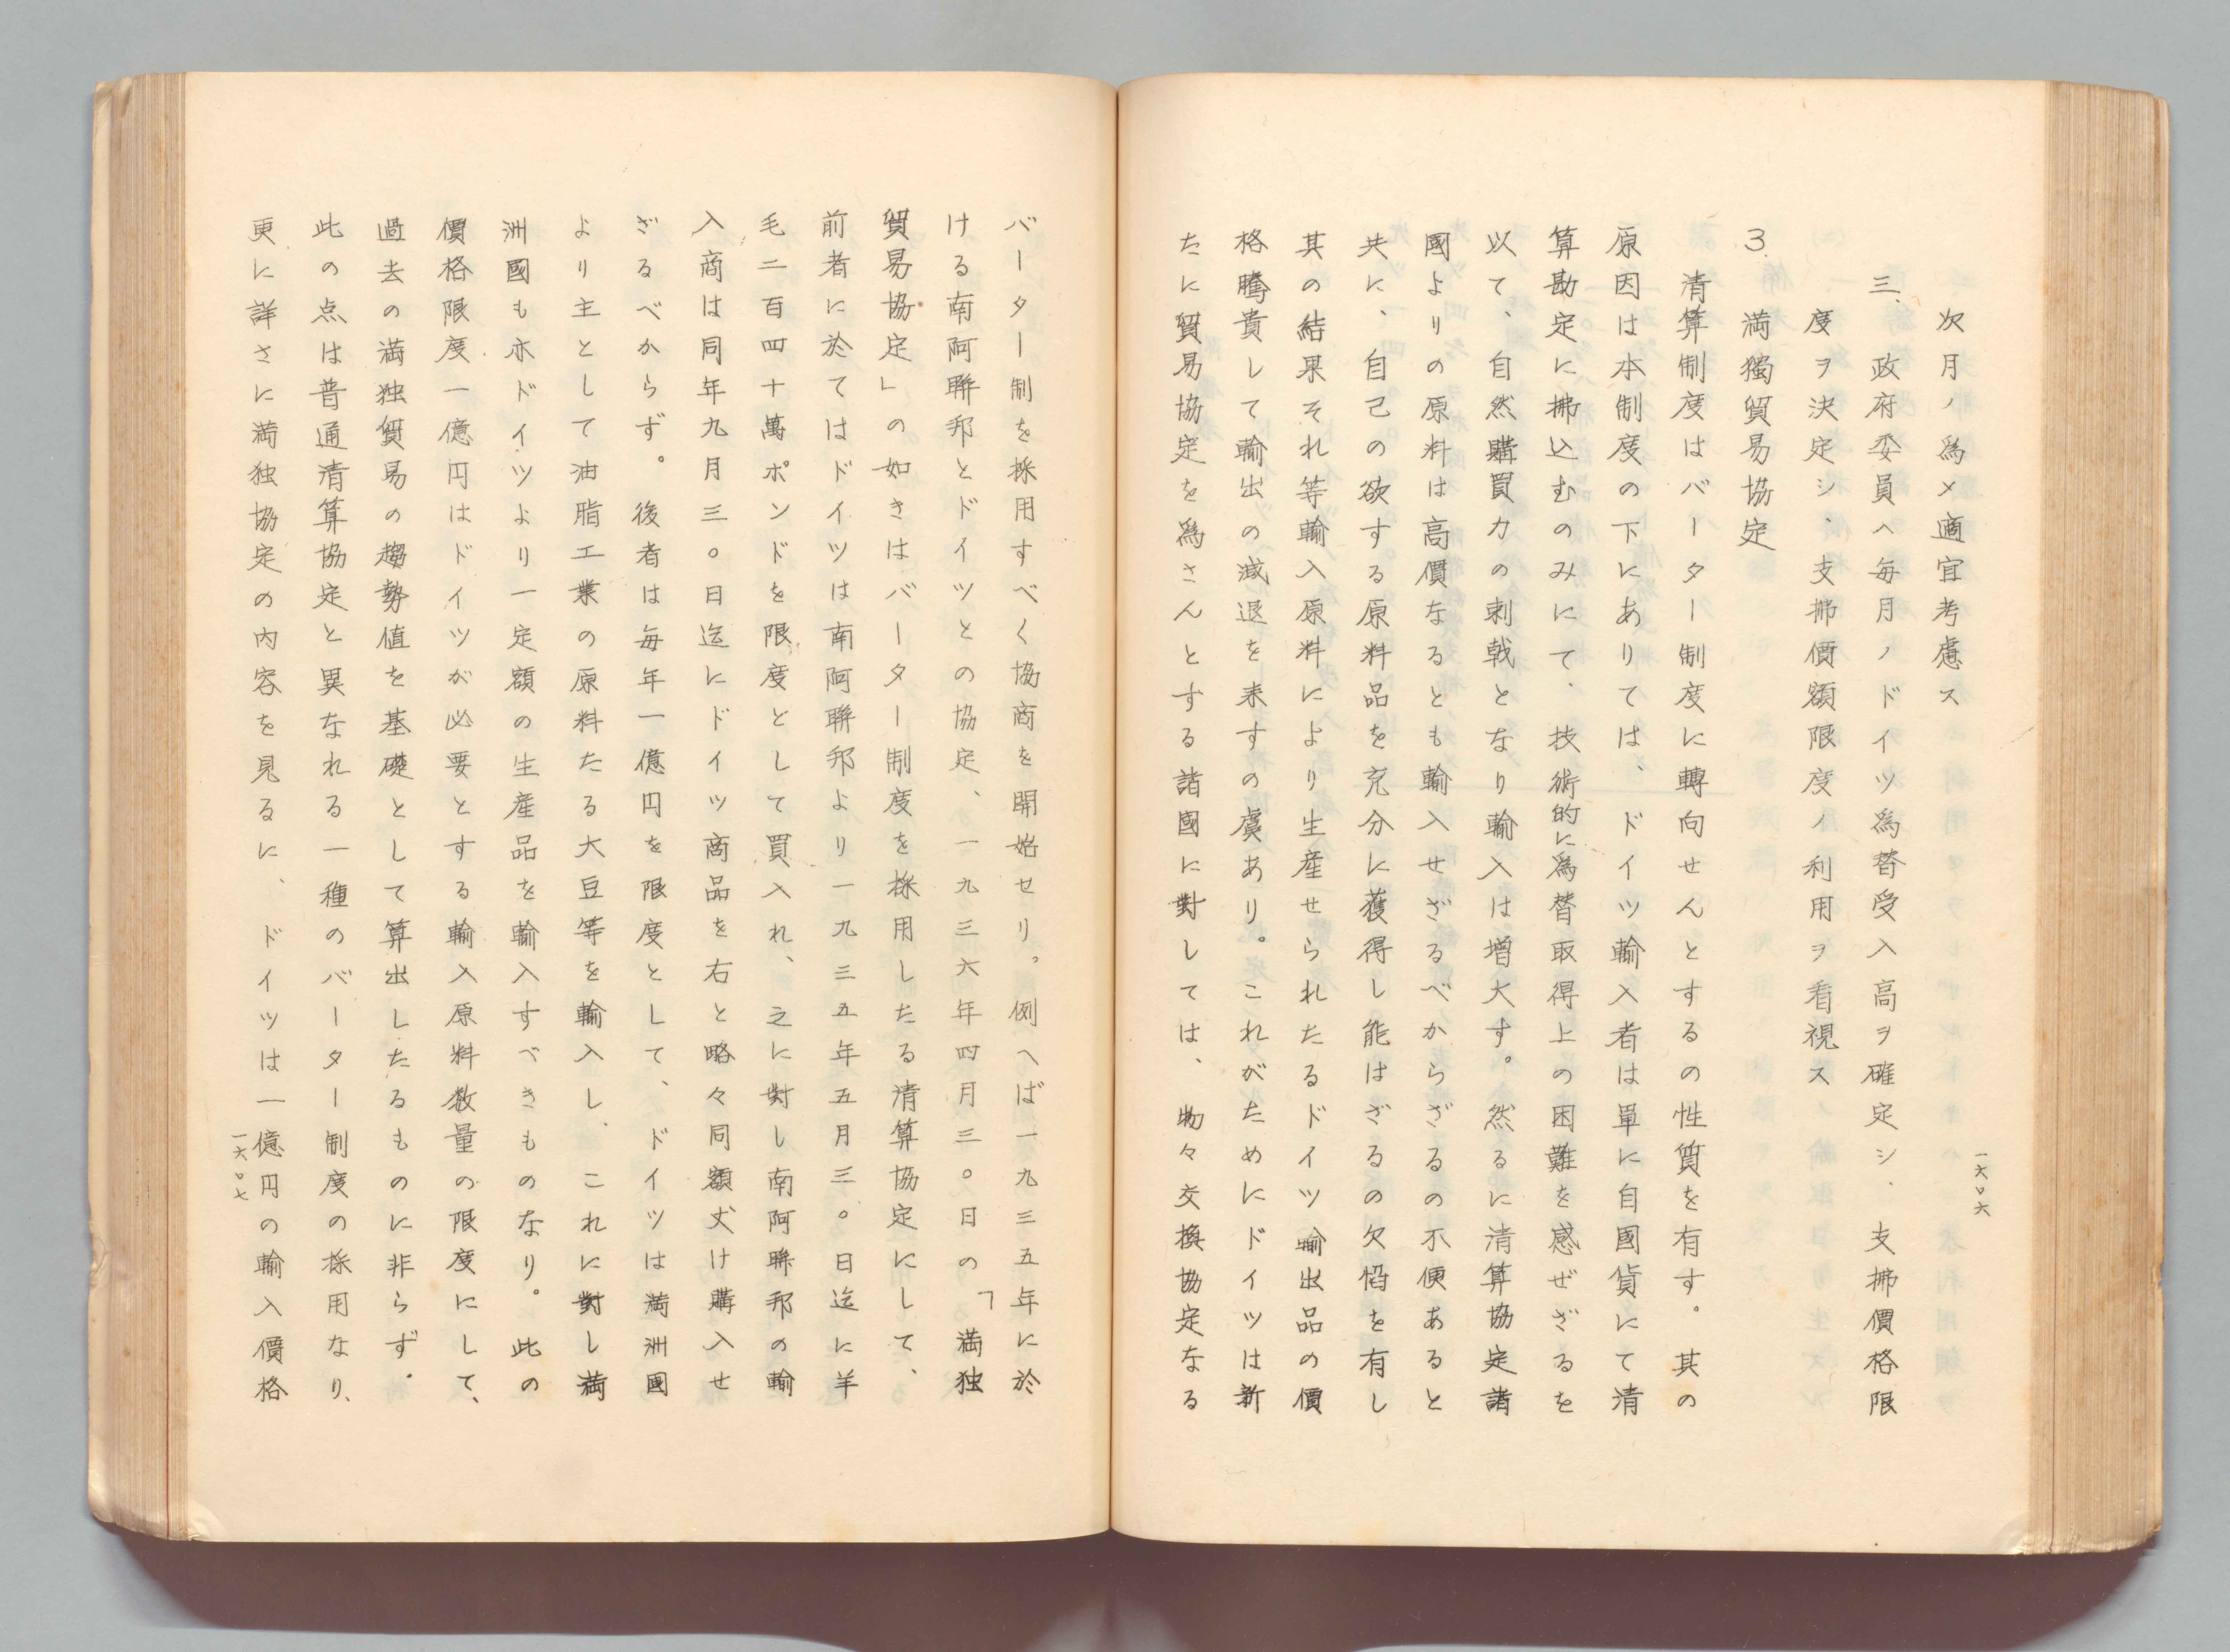 次月ノ爲メ適宜考慮ス
三、政府委員ヘ毎月ノドイツ爲替受入高ヲ確定シ、支拂價格限
度ヲ決定シ、支拂價額限度ノ利用ヲ看視ス
3. 満獨貿易協定
清算制度はバーター制度に轉向せんとするの性質を有す。其の
原因は本制度の下にありては、ドイツ輸入者は單に自國貨にて清
算勘定に拂込むのみにて、技術的に爲替取得上の困難を感ぜざるを
以て、自然購買力の刺戟となり輸入は増大す。然るに清算協定諸
國よりの原料は高價なるとも輸入せざるべからざるの不便あると
共に、自己の欲する原料品を充分に獲得し能はざるの欠陷を有し
其の結果それ等輸入原料により生産せられたるドイツ輸出品の價
格騰貴して輸出の减退を来すの虞あり。これがためにドイツは新
たに貿易協定を爲さんとする諸國に對しては、物々交換協定なる
一六〇六
バーター制を採用すべく協商を開始せり。例へば一九三五年に於
ける南阿聯邦とドイツとの協定、一九三六年四月三〇日の「満独
貿易協定」の如きはバーター制度を採用したる清算協定にして、
前者に於てはドイツは南阿聯邦より一九三五年五月三〇日迄に羊
毛二百四十萬ポンドを限度として買入れ、之に對し南阿聯邦の輸
入商は同年九月三〇日迄にドイツ商品を右と略々同額丈け購入せ
ざるべからず。後者は毎年一億円を限度として、ドイツは満洲國
より主として油脂工業の原料たる大豆等を輸入し、これに對し満
洲國も亦ドイツより一定額の生産品を輸入すべきものなり。此の
價格限度一億円はドイツが必要とする輸入原料数量の限度にして、
過去の満独貿易の趨勢値を基礎として算出したるものに非らず。
此の点は普通清算協定と異なれる一種のバーター制度の採用なり、
更に詳さに満独協定の内容を見るに、ドイツは一億円の輸入價格
一六〇七